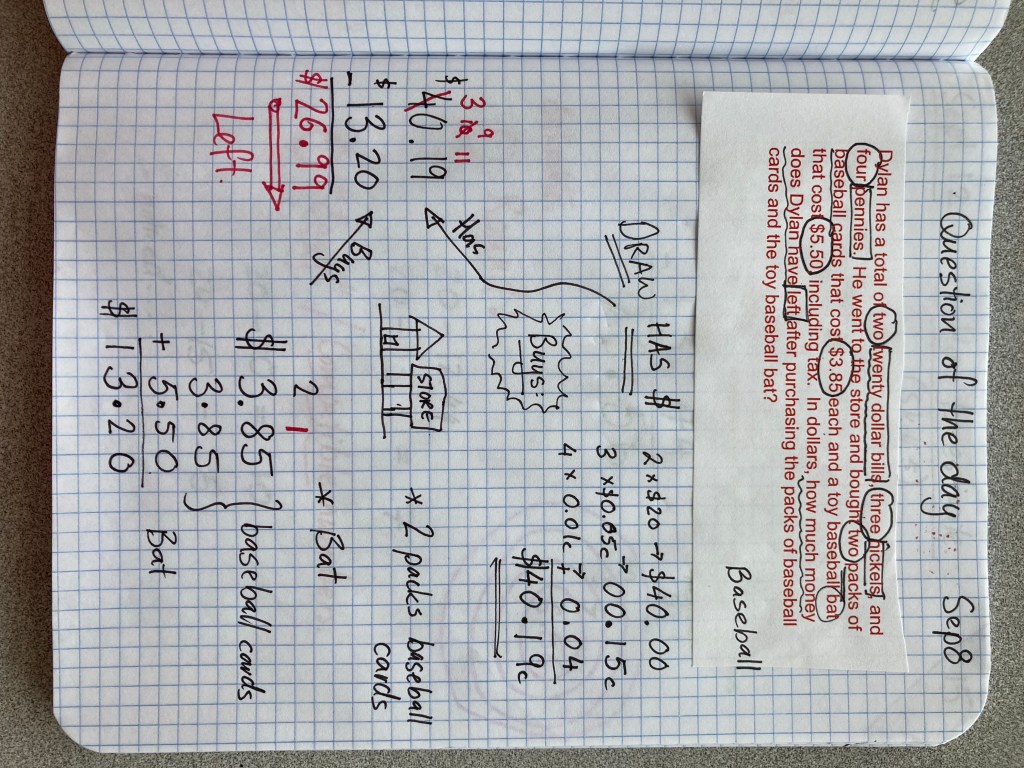 Question of the day: Sep 8
Dylan has a total of two twenty dollar bills, three nickels, and
four pennies. He went to the store and bought two packs of
baseball cards that cost $3.85 each and a toy baseball bat
that cost $5.50, including tax. In dollars, how much money
does Dylan have left after purchasing the packs of baseball
cards and the toy baseball bat?
Baseball
DRAW
HAS $
2 x $20 → $40.00
3 x $0.05c → 00.15c
4 x 0.01c → + 0.04
$40.19c
Has
Buys:
STORE
* 2 packs baseball
cards
* Bat
3 10 9 11
$ 40.19
- $ 13.20
$ 26.99
Left.
Buys
2 1
$ 3.85
3.85 } baseball cards
+ 5.50 Bat
$ 13.20